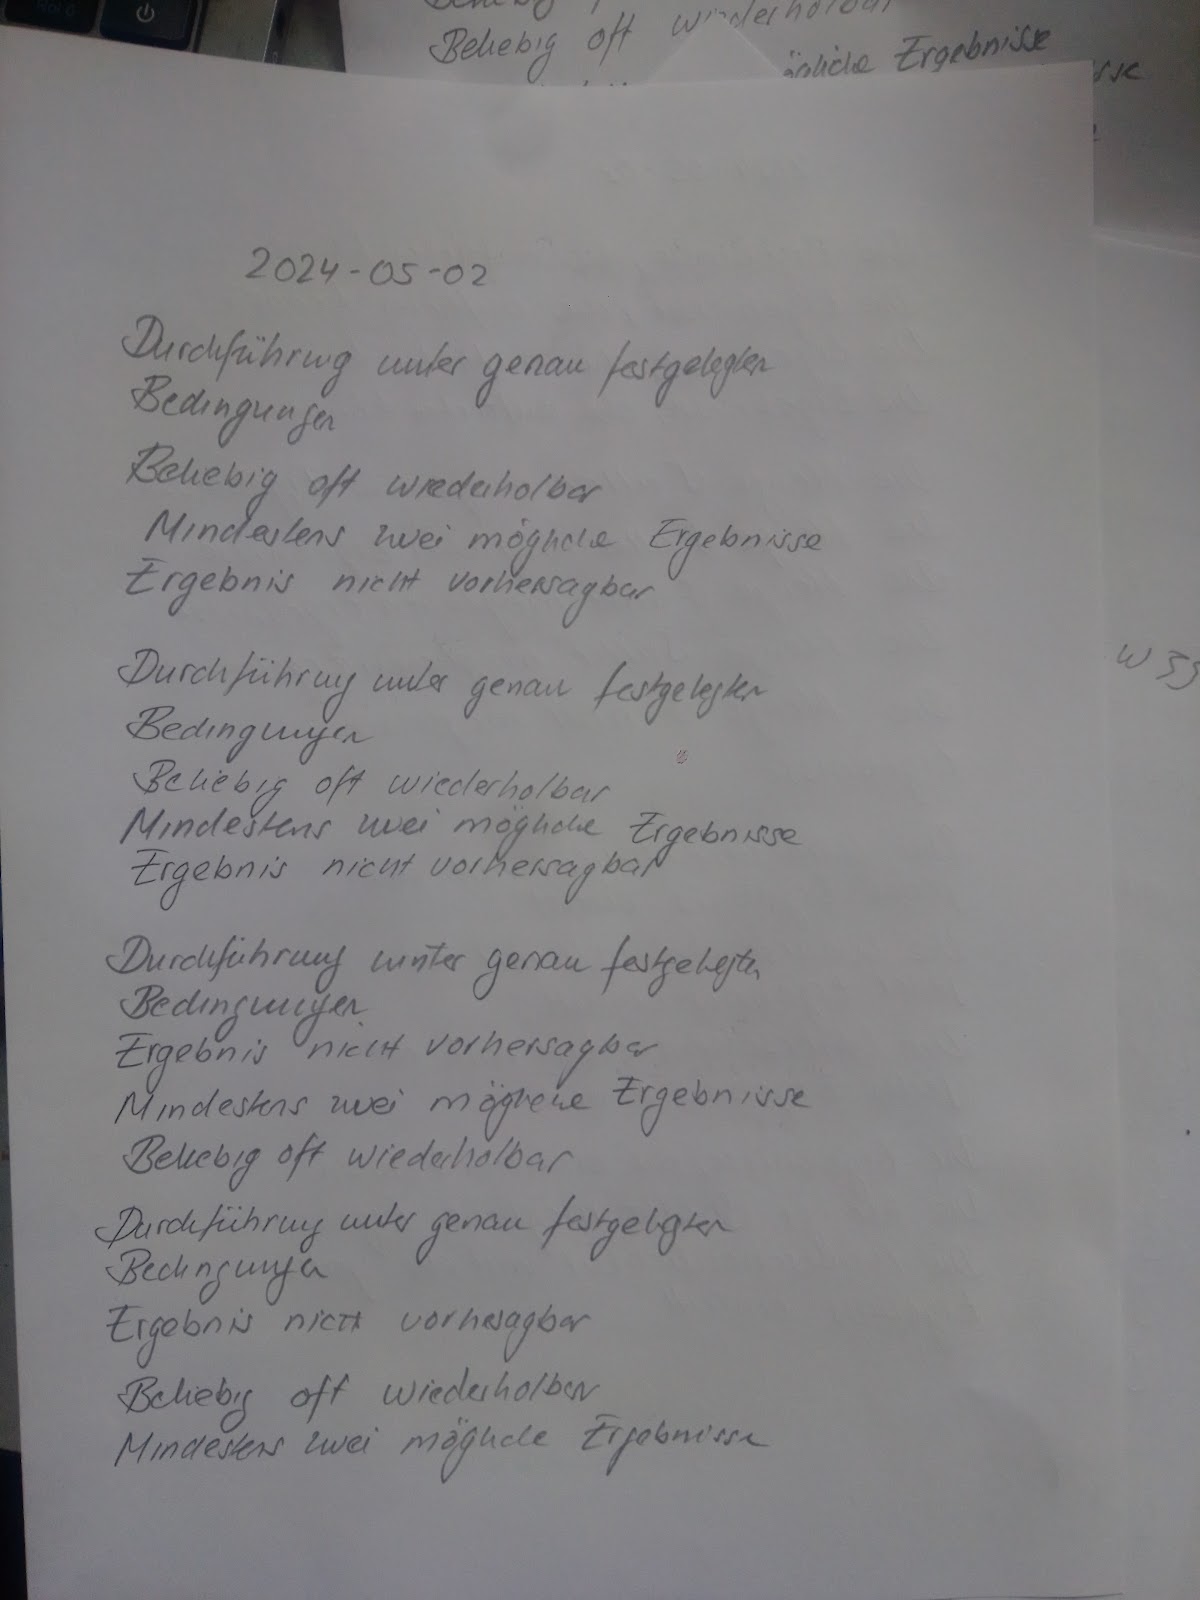 Beliebig oft wiederholbar
Ergebnisse
2024-05-02
Durchführung unter genau festgelegten
Bedingungen
Beliebig oft wiederholbar
Mindestens zwei mögliche Ergebnisse
Ergebnis nicht vorhersagbar
Durchführung unter genau festgelegten
Bedingungen
Beliebig oft wiederholbar
Mindestens zwei mögliche Ergebnisse
Ergebnis nicht vorhersagbar
Durchführung unter genau festgelegten
Bedingungen
Ergebnis nicht vorhersagbar
Mindestens zwei mögliche Ergebnisse
Beliebig oft wiederholbar
Durchführung unter genau festgelegten
Bedingungen
Ergebnis nicht vorhersagbar
Beliebig oft wiederholbar
Mindestens zwei mögliche Ergebnisse